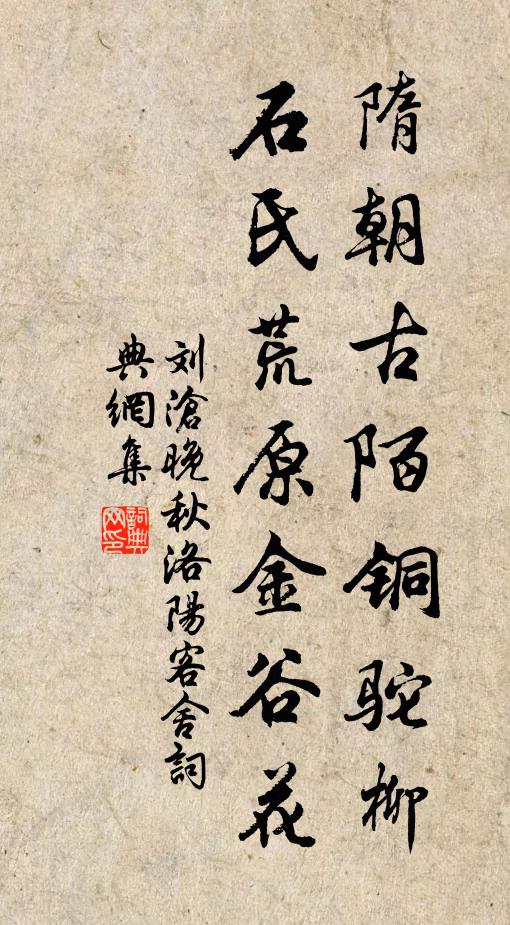 隋朝古陌铜驼柳
石氏荒原金谷花
刘滄晚秋洛陽客舍詞
典網集
詞典網印